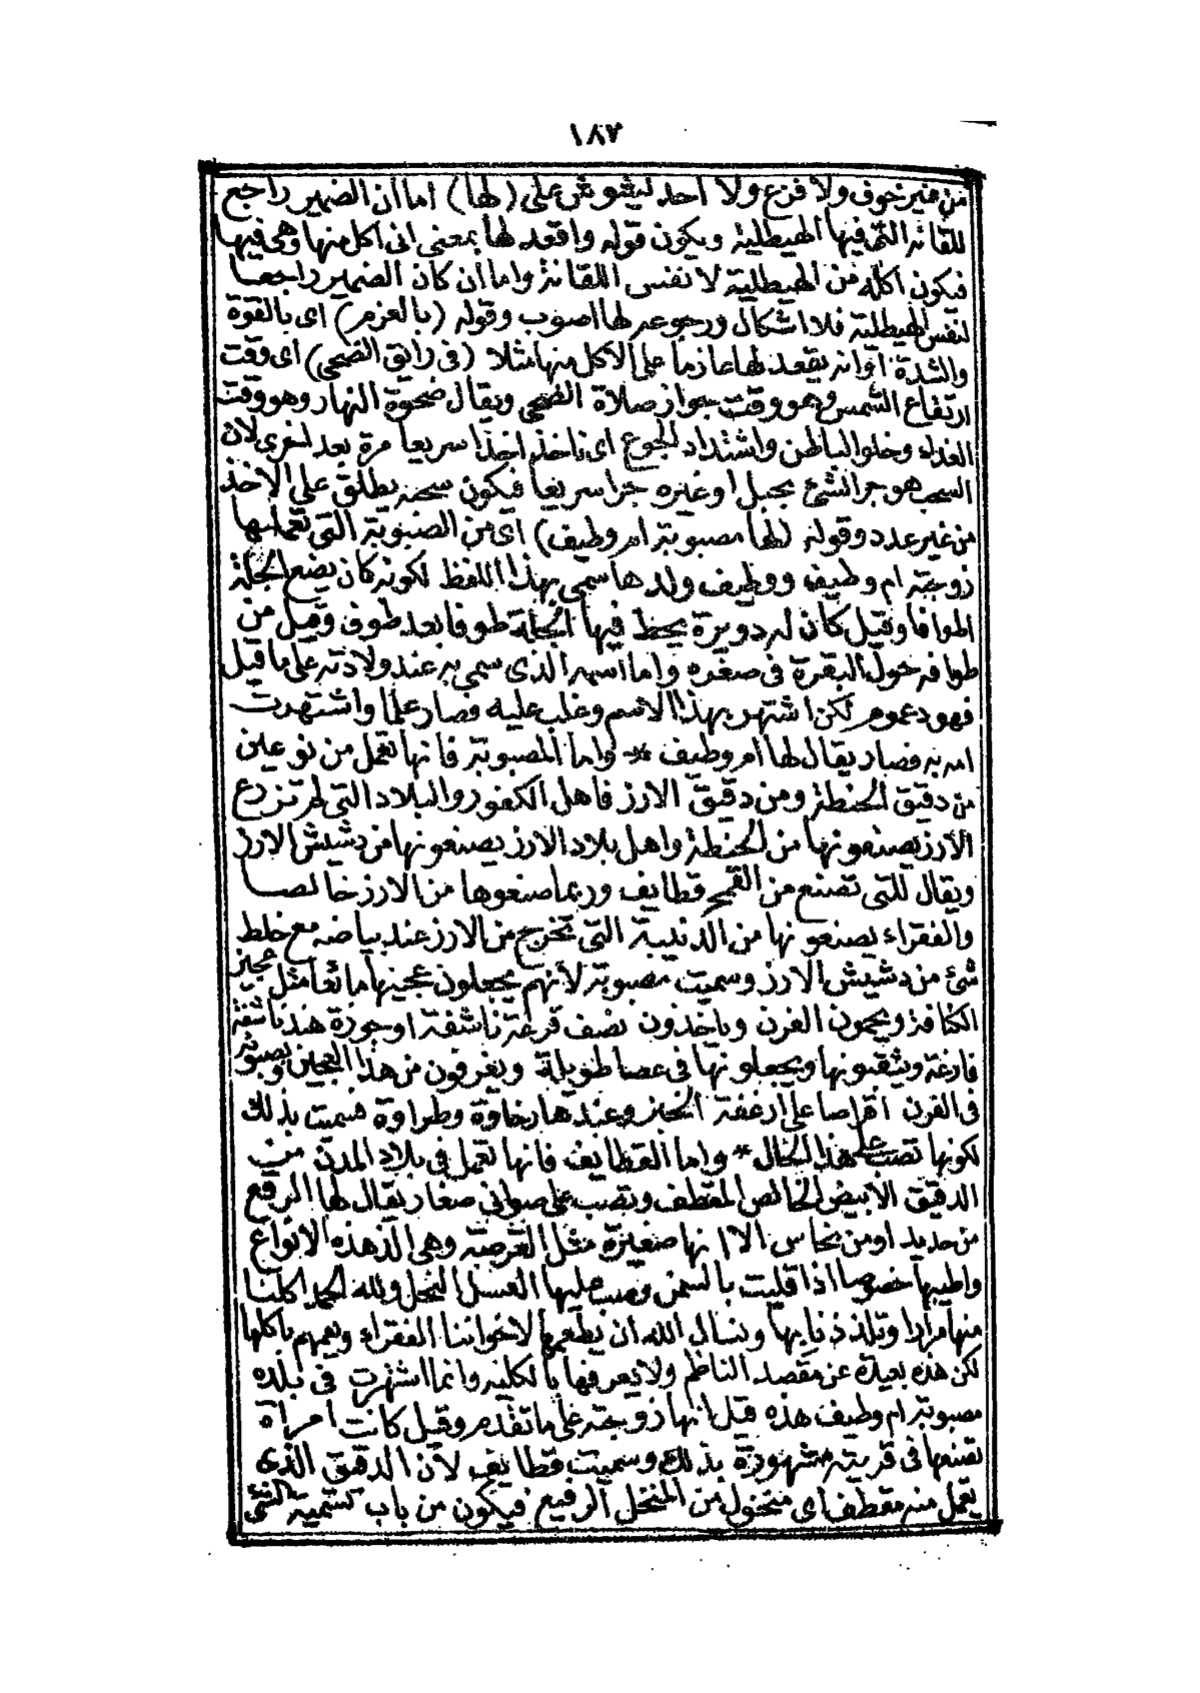 ١٨٧
من غير خوف ولا فزع ولا احد ليشوش على (لها) اما ان الضمير راجع
للقانة التى فيها الهيطلية ويكون قوله واقعد لها بمعنى انى اكل منها وهى فيها
فيكون اكله من الهيطلية لا نفس اللقانة واما ان كان الضمير راجعا
لنفس الهيطلية فلا اشكال ورجوعه لها اصوب وقوله (بالعزم) اى بالقوة
والشدة او انه يقعد لها عازما على الاكل منها مثلا (فى رايق الضحى) اى وقت
ارتفاع الشمس وهو وقت جواز صلاة الضحى ويقال ضحوة النهار وهو وقت
الغداء وخلو الباطن واشتداد الجوع اى ناخذ اخذا سريعا مرة بعد اخرى لان
السحب هو جر الشئ بحبل او غيره جرا سريعا فيكون سحبه يطلق على الاخذ
من غير عدد وقوله (لها مصبوبة ام وطيف) اى من الصبوبة التى تعملها
زوجته ام وطيف ووطيف ولدها سمى بهذا اللفظ لكونه كان يضع الجلة
اطوافا وقيل كان له دويرة يحط فيها الجلة طوفا بعد طوف وقيل من
طوافه حول البقرة فى صغره واما اسمه الذى سمى به عند ولادته على ما قيل
فهو دعموم لكن اشتهر بهذا الاسم وغلب عليه وصار علما واشتهرت
امه به فصار يقال لها ام وطيف * واما المصبوبة فانها تعمل من نوعين
من دقيق الحنطة ومن دقيق الارز فاهل الكفور والبلاد التى لم تزرع
الارز يصنعونها من الحنطة واهل بلاد الارز يصنعونها من دشيش الارز
ويقال للتى تصنع من القمح قطايف وربما صنعوها من الارز خالصا
والفقراء يصنعونها من الدنيبة التى تخرج من الارز عند بياضه مع خلط
شئ من دشيش الارز وسميت مصبوبة لانهم يجعلون عجينها مائعا مثل عجين
الكنافة ويحمون الفرن وياخذون نصف قرعة ناشفة او جوزة هند ناشفة
فارغة ويثقبونها ويجعلونها فى عصا طويلة ويغرفون من هذا العجين ويصبونه
فى الفرن اقراصا على ارغفة الخبز وعندها رخاوة وطراوة فسميت بذلك
لكونها تصب على هذا الحال * واما القطايف فانها تعمل فى بلاد المدن من
الدقيق الابيض الخالص المقطف وتصب على صوانى صغار يقال لها الرقع
من حديد او من نحاس الا انها صغيرة مثل القرصة وهى الذ هذه الانواع
واطيبها خصوصا اذا قليت بالسمن وصب عليها العسل النحل ولله الحمد اكلنا
منها مرارا وتلذذنا بها ونسال الله ان يطعمها لاخواننا الفقراء ويعمهم باكلها
لكن هذه بعيدة عن مقصد الناظم ولا يعرفها بالكلية وانما اشتهرت فى بلده
مصبوبة ام وطيف هذه قيل انها زوجته على ما تقدم وقيل كانت امراة
تصنعها فى قريته مشهورة بذلك وسميت قطايف لان الدقيق الذى
يعمل منه مقطف اى منخول من المنخل الرفيع فيكون من باب تسمية الشئ